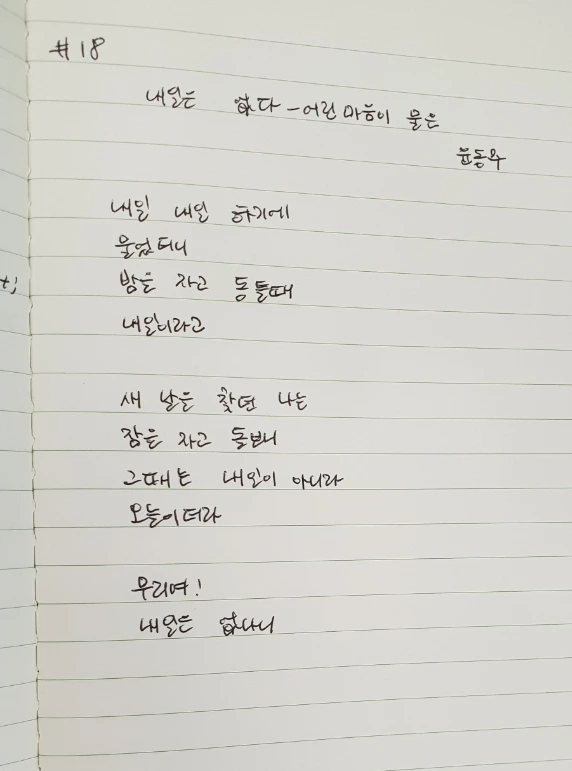 #18
내일은 없다 - 어린 마음이 물은
윤동주
내일 내일 하기에
물었더니
밤을 자고 동틀때
내일이라고
새 날을 찾던 나는
잠을 자고 돌보니
그때는 내일이 아니라
오늘이더라
무리여!
내일은 없나니